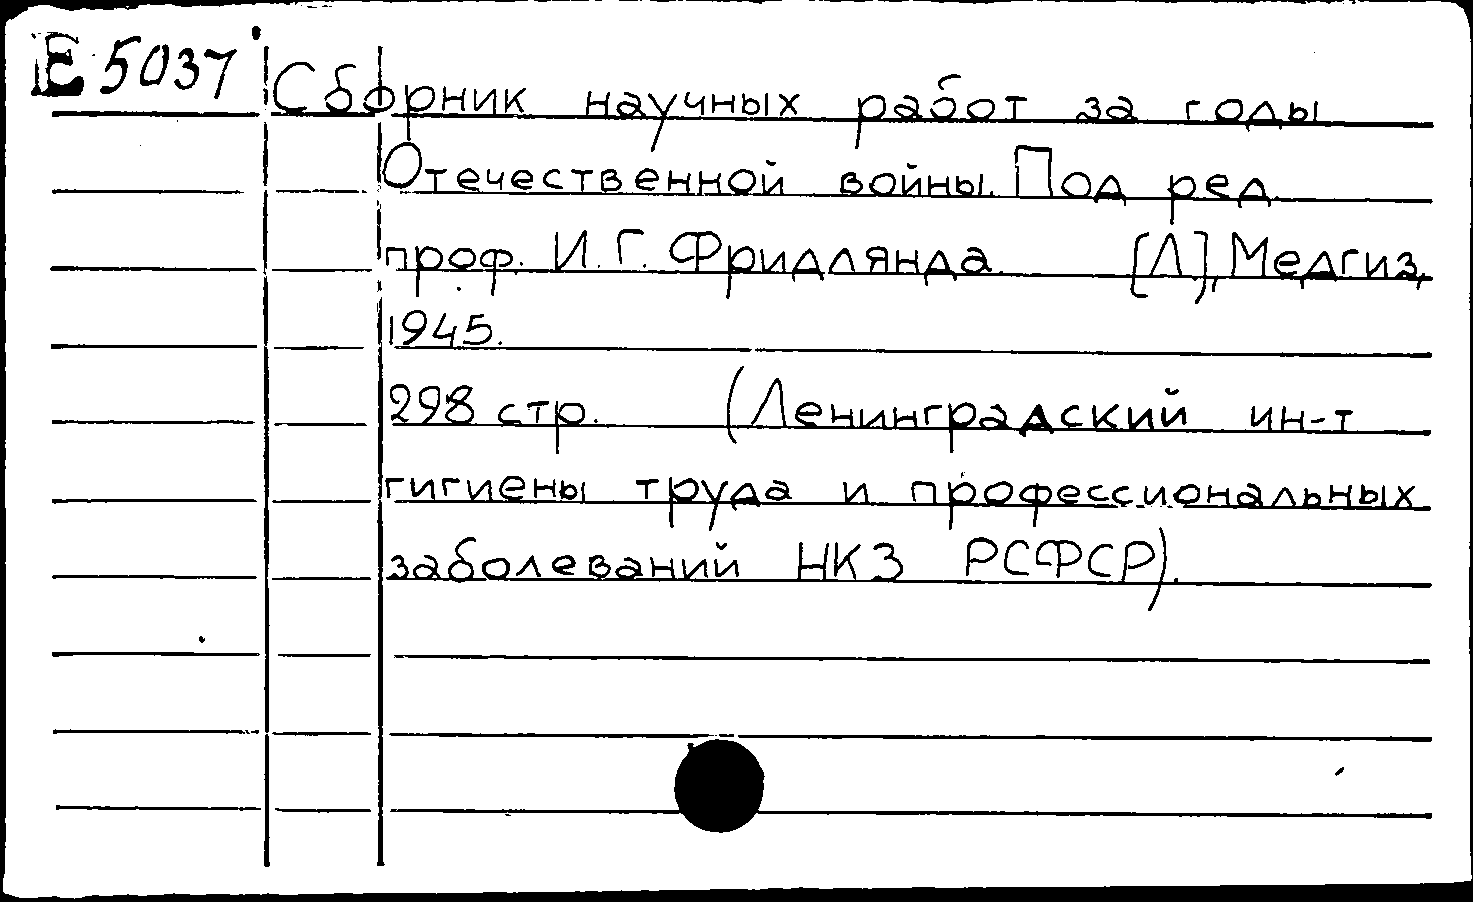 Е 5037
Сборник научных работ за годы
Отечественной войны. Под ред.
проф. И. Г. Фридлянда. [Л], Медгиз,
1945.
298 стр. (Ленинградский ин-т
гигиены труда и профессиональных
заболеваний НКЗ РСФСР).